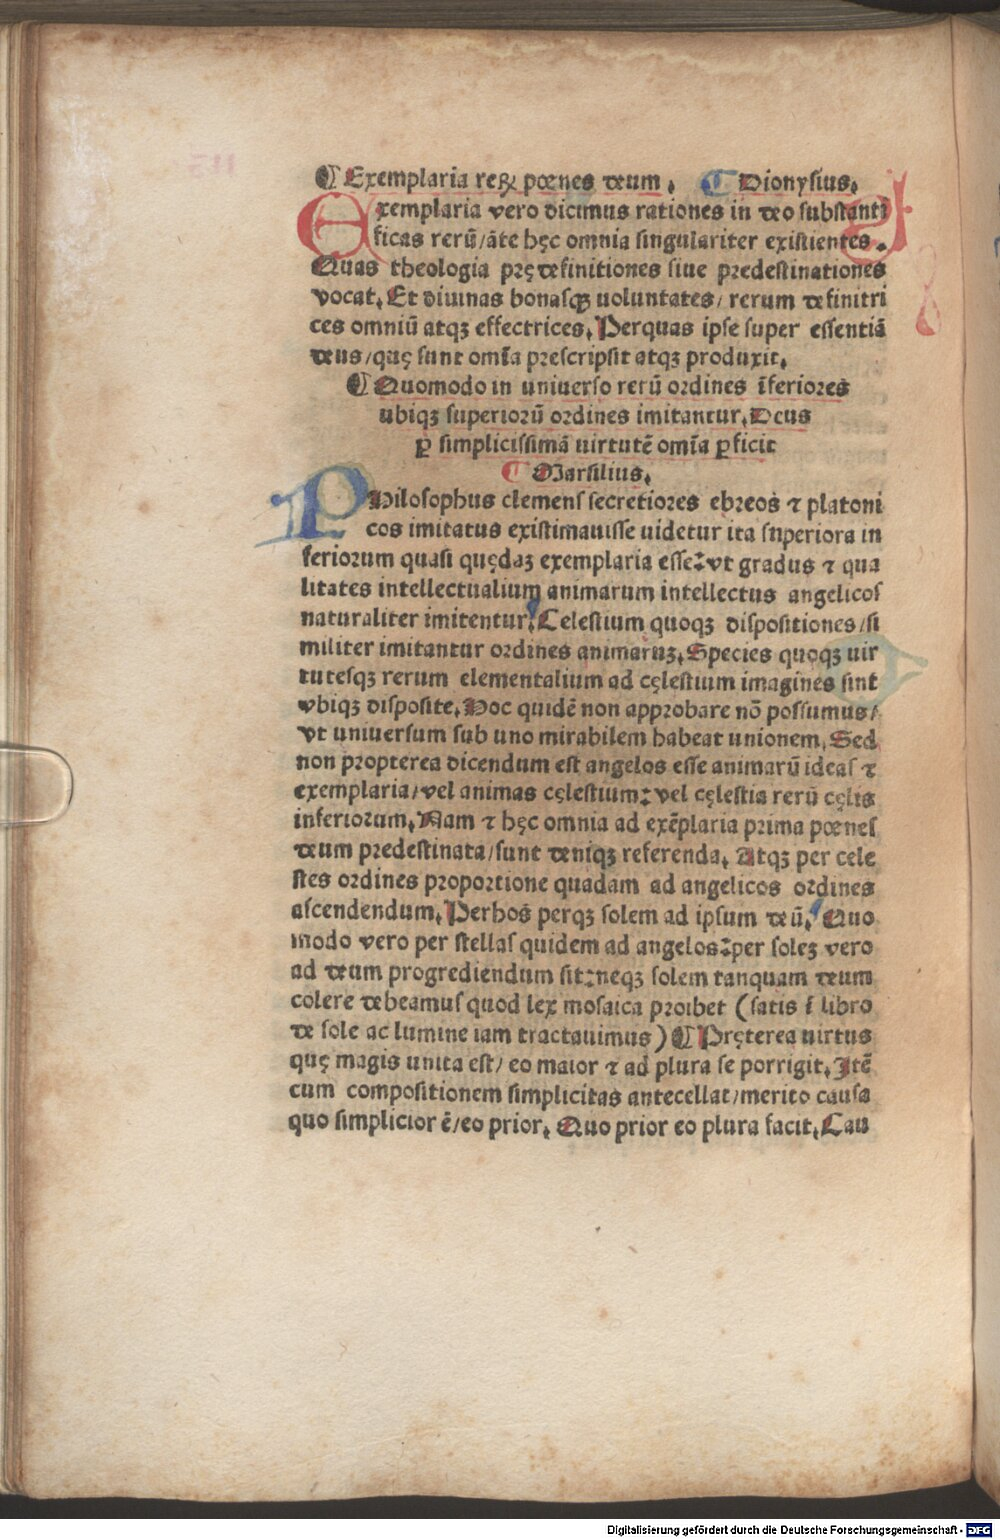 ¶ Exemplaria reꝝ pœnes deum. ¶ Dionysius.
Exemplaria vero dicimus rationes in deo substanti
ficas rerū/āte hęc omnia singulariter existentes.
Quas theologia prędefinitiones siue predestinationes
vocat. Et diuinas bonasqꝫ uoluntates/ rerum definitri
ces omniū atqꝫ effectrices. Perquas ipse super essentiā
deus/quę sunt om̄ia prescripsit atqꝫ produxit.
¶ Quomodo in uniuerso rerū ordines īferiores
ubiqꝫ superiorū ordines imitantur. Deus
ꝑ simplicissimā uirtutē om̄ia ꝑficit
¶ Marsilius.
PHilosophus clemens secretiores ebreos ⁊ platoni
cos imitatus existimauisse uidetur ita superiora in
feriorum quasi quędaꝫ exemplaria esse: vt gradus ⁊ qua
litates intellectualium animarum intellectus angelicos
naturaliter imitentur. Celestium quoqꝫ dispositiones/si
militer imitantur ordines animaruꝫ. Species quoqꝫ uir
tutesqꝫ rerum elementalium ad cęlestium imagines sint
vbiqꝫ disposite. Hoc quidē non approbare nō possumus/
vt uniuersum sub uno mirabilem habeat unionem. Sed
non propterea dicendum est angelos esse animarū ideas ⁊
exemplaria/vel animas cęlestium: vel cęlestia rerū cęlis
inferiorum. Nam ⁊ hęc omnia ad exēplaria prima pœnes
deum predestinata/sunt deniqꝫ referenda. Atqꝫ per cele
stes ordines proportione quadam ad angelicos ordines
ascendendum. Perhos perqꝫ solem ad ipsum deū. Quo
modo vero per stellas quidem ad angelos: per soleꝫ vero
ad deum progrediendum sit: neqꝫ solem tanquam deum
colere debeamus quod lex mosaica proibet (satis ī libro
de sole ac lumine iam tractauimus) ¶ Pręterea uirtus
quę magis unita est/ eo maior ⁊ ad plura se porrigit. Itē
cum compositionem simplicitas antecellat/merito causa
quo simplicior ē/eo prior. Quo prior eo plura facit. Cau
Digitalisierung gefördert durch die Deutsche Forschungsgemeinschaft - DFG